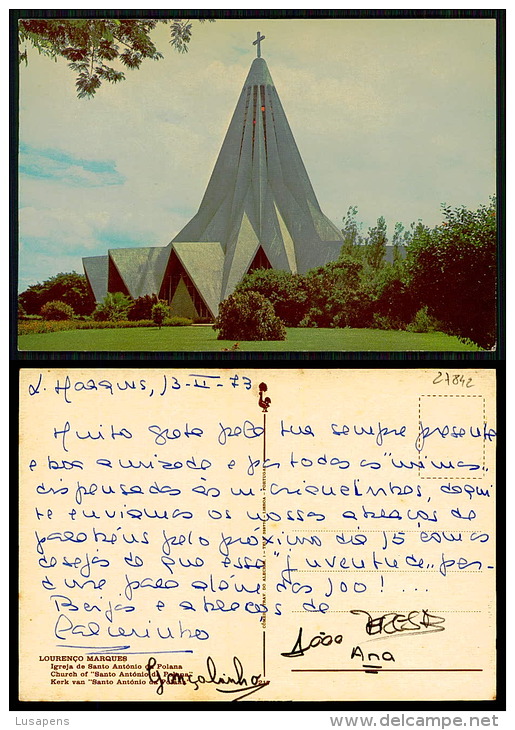 27842
L. Marques, 13-II-73
Muito grata pela tua sempre presente
e boa amizade e por todos os "mimos"
dispensados às m/ criancinhas, daqui
te enviamos os nossos abraços de
parabéns pelo próximo dia 15 com os
desejos de que essa "juventude" per-
dure para além dos 100! ...
Beijos e abraços de
João
Ana
Gonçalinho
LOURENÇO MARQUES
Igreja de Santo António de Polana
Church of "Santo António da Polana"
Kerk van "Santo António da Polana"
Lusapens
www.delcampe.net